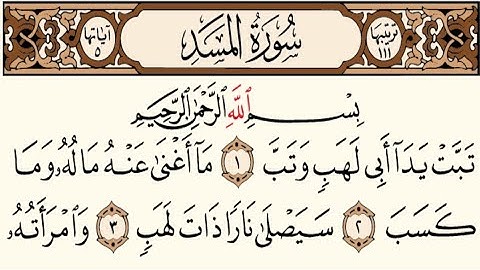 ترتيبها ١١١ سُورَةُ المَسَدِ آياتها
بِسْمِ اللَّهِ الرَّحْمَٰنِ الرَّحِيمِ
تَبَّتْ يَدَآ أَبِى لَهَبٍ وَتَبَّ ١ مَآ أَغْنَىٰ عَنْهُ مَالُهُۥ وَمَا
كَسَبَ ٢ سَيَصْلَىٰ نَارًا ذَاتَ لَهَبٍ ٣ وَٱمْرَأَتُهُۥ